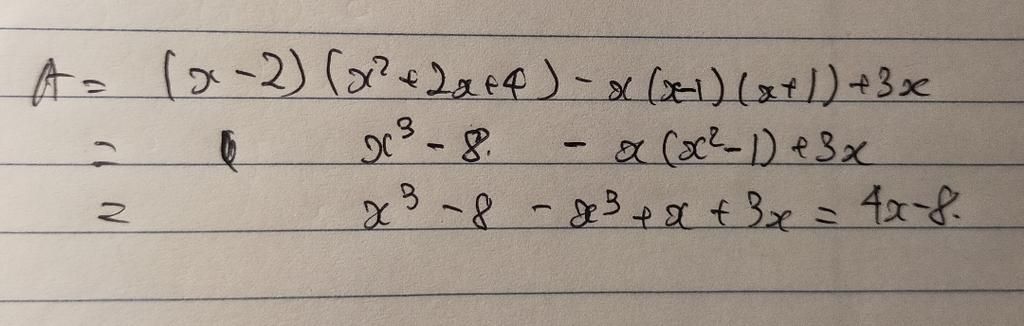 A = (x-2)(x²+2x+4) - x(x-1)(x+1)+3x
= x³-8. - x(x²-1)+3x
= x³-8 - x³+x+3x = 4x-8.